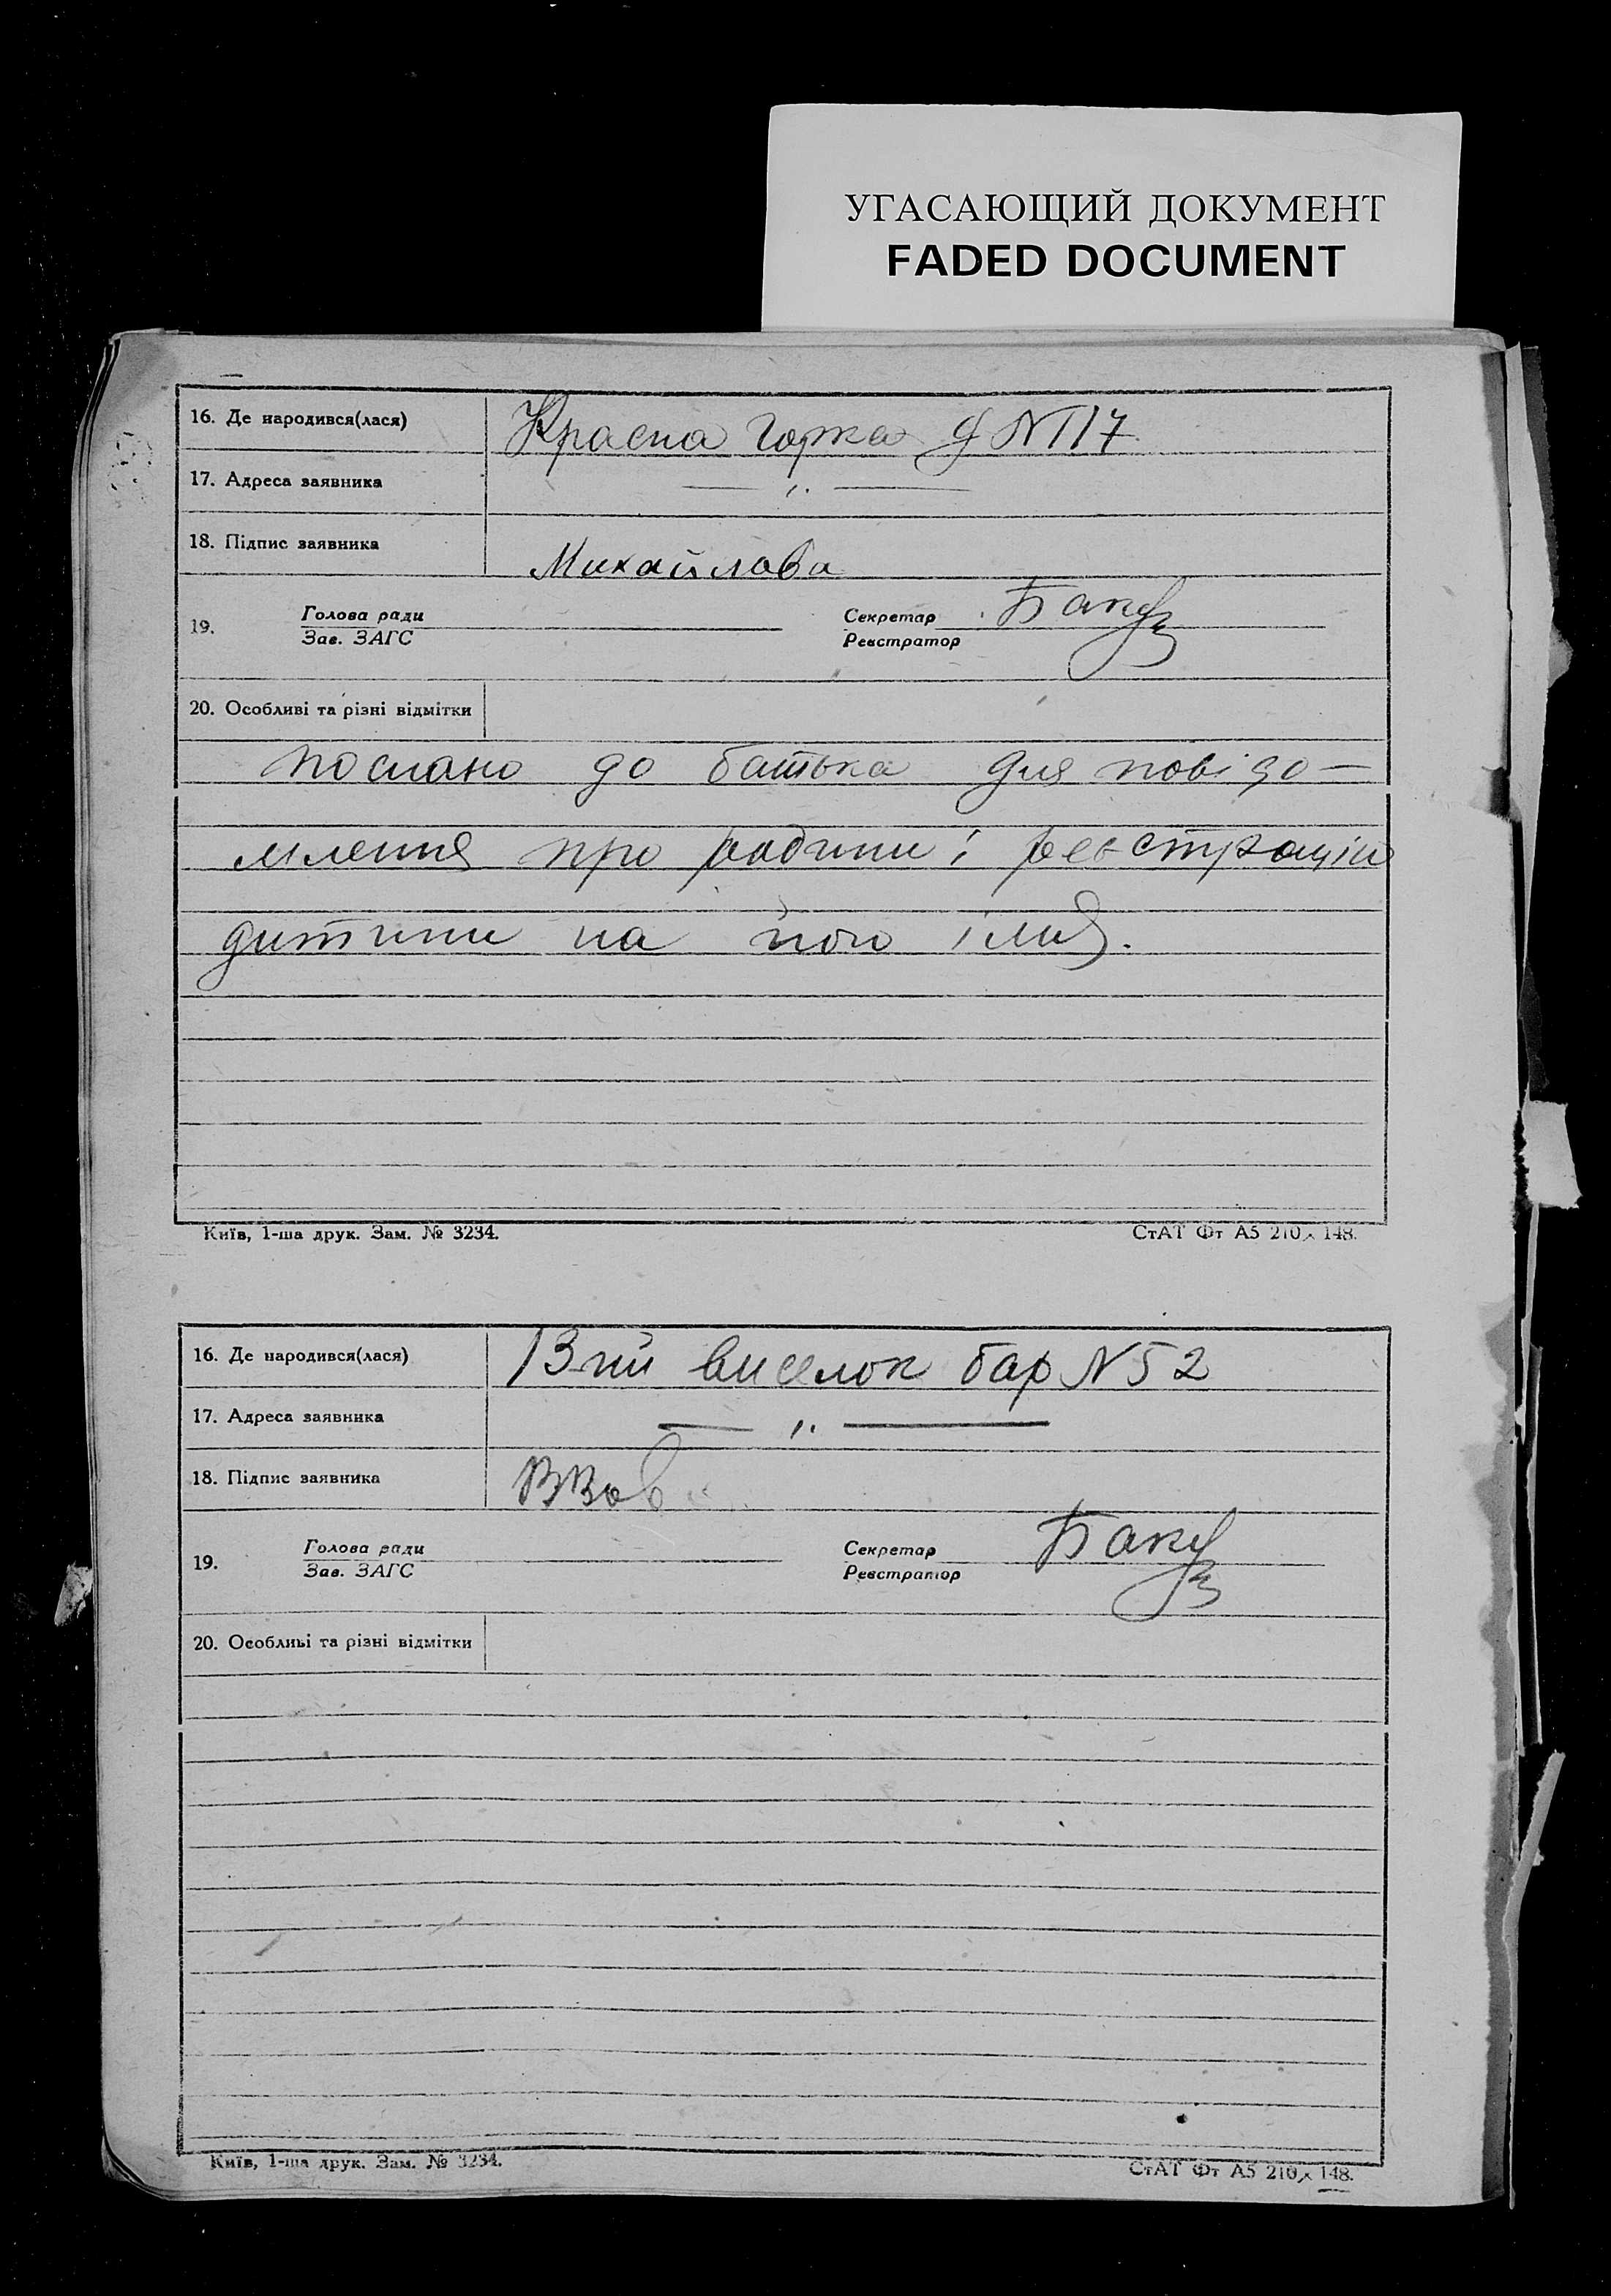 УГАСАЮЩИЙ ДОКУМЕНТ
FADED DOCUMENT
16. Де народився(лася) Красна горка д N 117
17. Адреса заявника — „ —
18. Підпис заявника Михайлова
19. Голова ради Секретар
Зав. ЗАГС Реєстратор
20. Особливі та різні відмітки
послано до батька для повідо—
млення про родини і реєстрацію
дитини на його імя.
Київ, 1-ша друк. Зам. № 3234. СтАТ Фт А5 210×148.
16. Де народився(лася) 13-ий виселок бар N 52
17. Адреса заявника — „ —
18. Підпис заявника
19. Голова ради Секретар
Зав. ЗАГС Реєстратор
20. Особливі та різні відмітки
Київ, 1-ша друк. Зам. № 3234. СтАТ Фт А5 210×148.